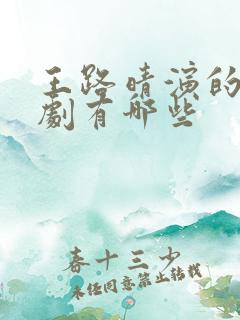 王路晴演的
劇有哪些
春十三少
未经同意禁止转载